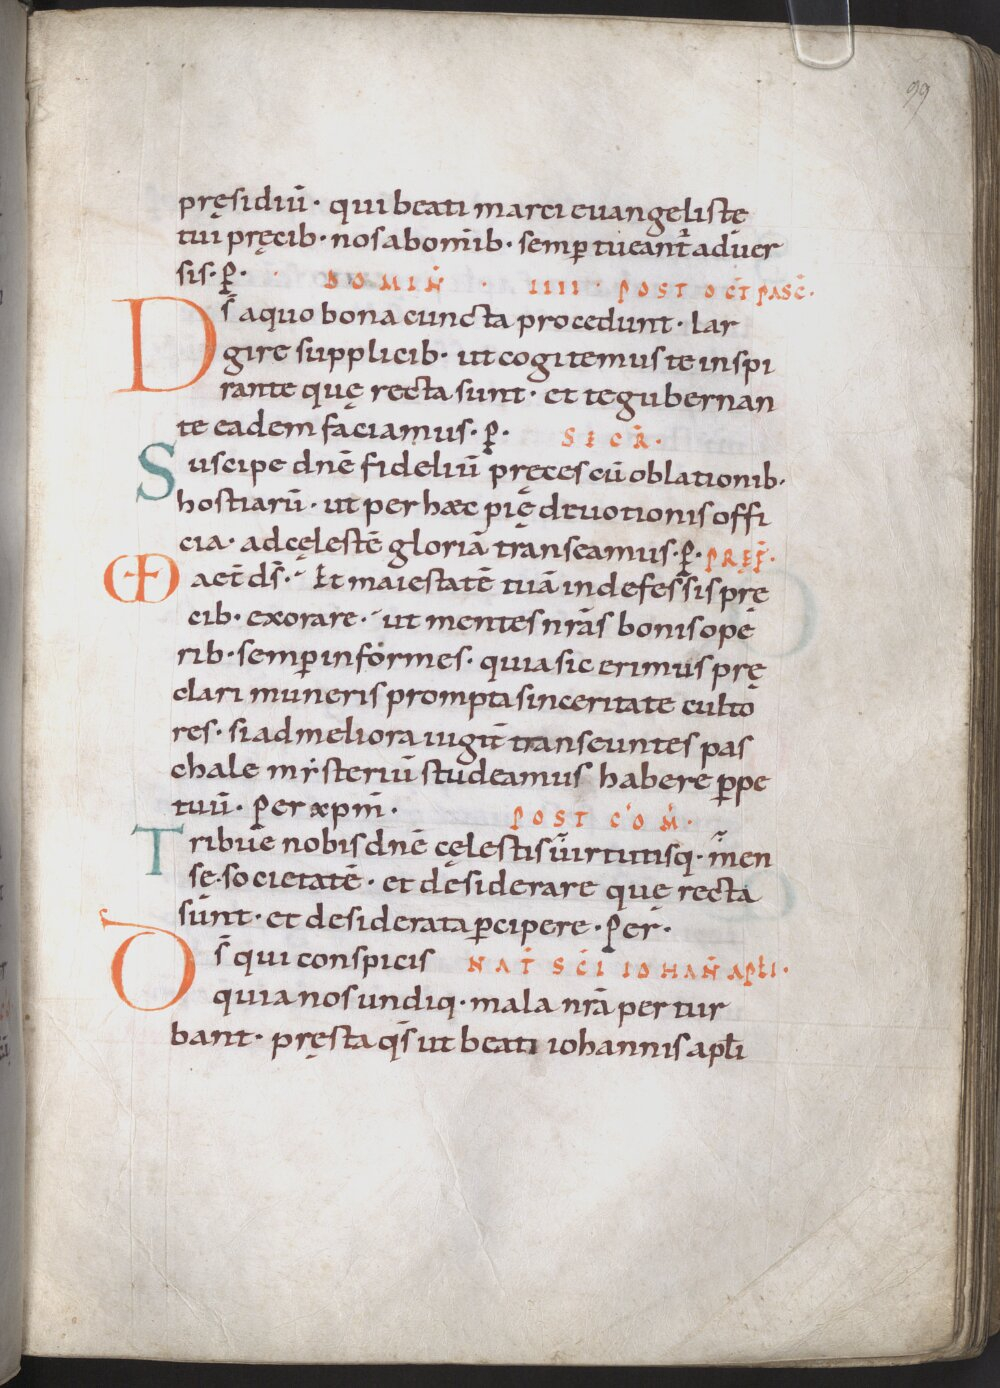 99
pręsidiū· qui beati marci euangeliste
tui pręcib· nos ab om̄ib· semp̄ tueant̄ aduer
sis· p̱· DOMIN̄· IIII· POST OCT̄ PASC̄·
Ds̄ a quo bona cuncta procedunt· lar
gire supplicib· ut cogitemus te inspi
rante quę recta sunt· et te gubernan
te eadem faciamus· p̱· SECR̄·
Suscipe dnē fideliū pręces cū oblationib·
hostiarū· ut per hæc pię deuotionis offi
cia· ad cęlestē gloriā transeamus· p̱· PRĘF̄·
aet̄ ds̄· Et maiestatē tuā indefessis prę
cib· exorare· ut mentes nrās bonis ope
rib· semp̄ informes· quia sic erimus prę
clari muneris prompta sinceritate culto
res· si ad meliora iugit̄ transeuntes pas
chale mẏsteriū studeamus habere p̱pe
tuū· Per xp̄m· POST COM̄·
Tribue nobis dnē cęlestis uirtutisq· men
sę societatē· et desiderare quę recta
sunt· et desiderata p̱cipere· Per·
Ds̄ qui conspicis NAT̄ SC̄I IOHAN̄ apłi·
quia nos undiq· mala nrā pertur
bant· pręsta qs̄ ut beati iohannis apłi